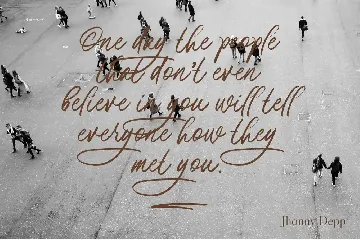 One day the people
that don't even
believe in you will tell
everyone how they
met you.
Jhonny Depp